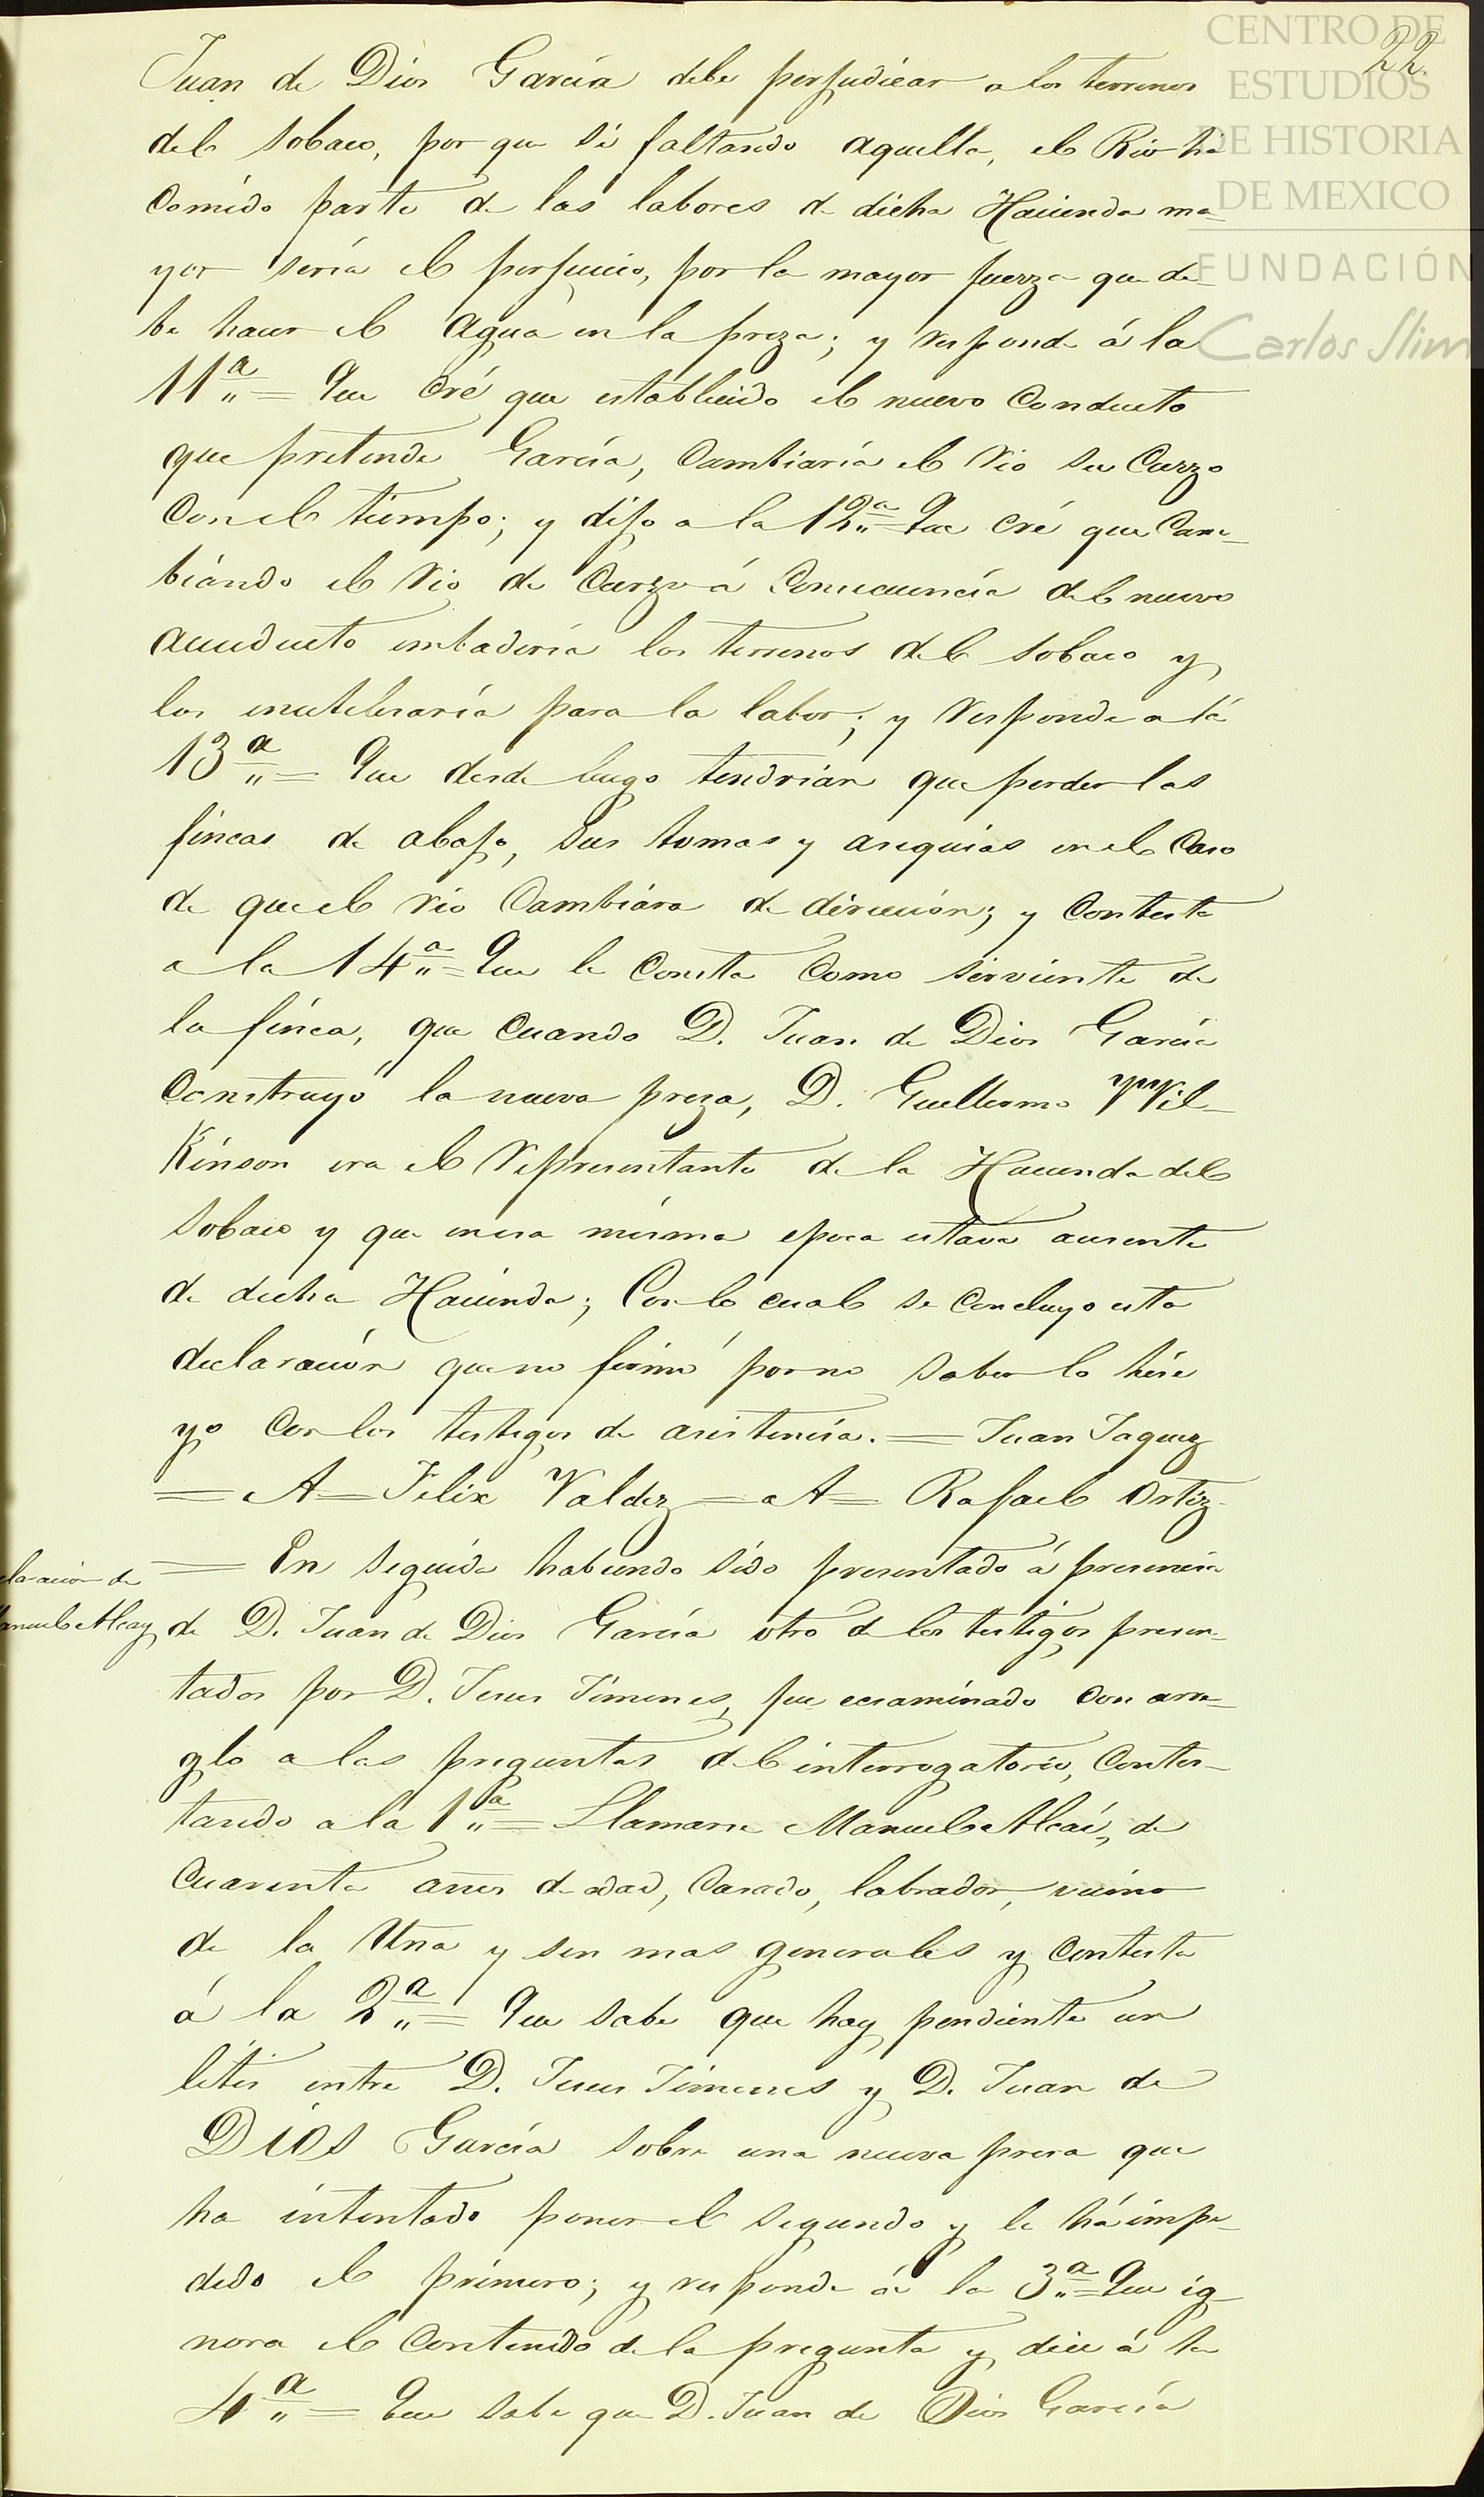 CENTRO DE
ESTUDIOS
DE HISTORIA
DE MEXICO
FUNDACIÓN
Carlos Slim
22.
Juan de Dios García debe perjudicar a los terrenos
del Sobaco, por que si faltando aquella, el Rio há
comido parte de las labores de dicha Hacienda ma-
yor sería el perjuicio, por la mayor fuerza que de-
be hacer el agua en la preza; y responde á la
11ª = Que cré que establecido el nuevo conducto
que pretende García, cambiaría el rio su curzo
con el tiempo; y dijo a la 12ª = Que cré que cam-
biando el rio de curzo á consecuencia del nuevo
acueducto imbadiría los terrenos del Sobaco y
los inutilisaría para la labor; y responde a la
13ª = Que desde luego tendrian que perder las
fincas de abajo, sus tomas y asequias en el caso
de que el rio cambiára de dirección; y contesta
a la 14ª = Que le consta como sirviente de
la finca, que cuando D. Juan de Dios García
construyó la nueva preza, D. Guillermo Wil-
kinson era el representante de la Hacienda del
Sobaco y que en esa misma epoca estava ausente
de dicha Hacienda; Con lo cual se concluyo esta
declaración que no firmó por no saber lo hise
yo con los testigos de asistencia. = Juan Jaquez
= A = Felix Valdez = A = Rafael Ortiz.
= En seguida habiendo sido presentado á presencia
laración de
anuel Alcay
de D. Juan de Dios García otro de los testigos presen-
tados por D. Jesus Jimenes, fue ecsaminado con arre-
glo a las preguntas del interrogatorio, contes-
tando a la 1ª = Llamarse Manuel Alcaí, de
cuarenta años de edad, casado, labrador, vecino
de la Uña y sin mas generales y contesta
á la 2ª = Que sabe que hay pendiente un
litis entre D. Jesus Jimenes y D. Juan de
Dios García sobre una nueva presa que
ha intentado poner el segundo y le há impe-
dido el primero; y responde á la 3ª = Que ig-
nora el contenido de la pregunta y dice á la
4ª = Que sabe que D. Juan de Dios García